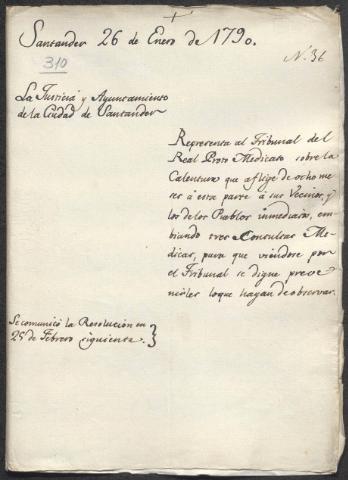 +
Santander 26 de Enero de 1790.
310
N.36
La Justicia y Ayuntamiento
de la Ciudad de Santander
Representa al Tribunal del
Real Proto Medicato sobre la
Calentura que aflige de ocho me
ses á esta parte á sus Vecinos, y
los de los Pueblos inmediatos, em-
biando tres Consultas Me-
dicas, para que viendose por
el Tribunal se digne preve
nirles lo que hayan de observar.
Se comunicó la Resolucion en
25 de Febrero siguiente.